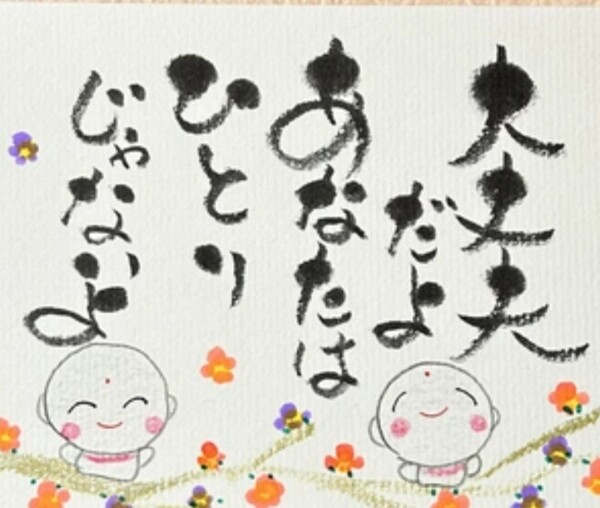 大丈夫
だよ
あなたは
ひとり
じゃないよ